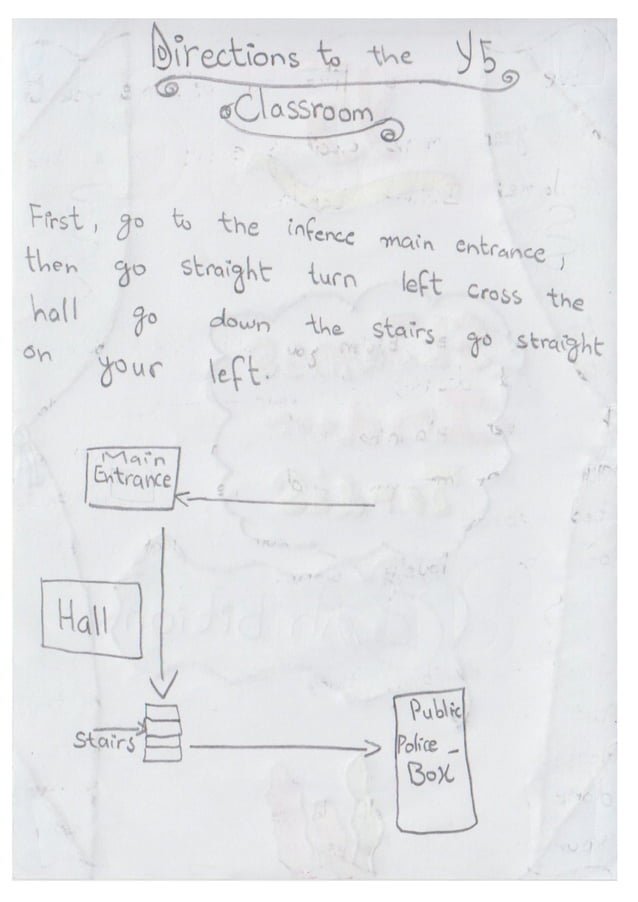 Directions to the Y5
Classroom
First, go to the infence main entrance,
then go straight turn left cross the
hall go down the stairs go straight
on your left.
Main
Entrance
Hall
Stairs
Public
Police -
Box